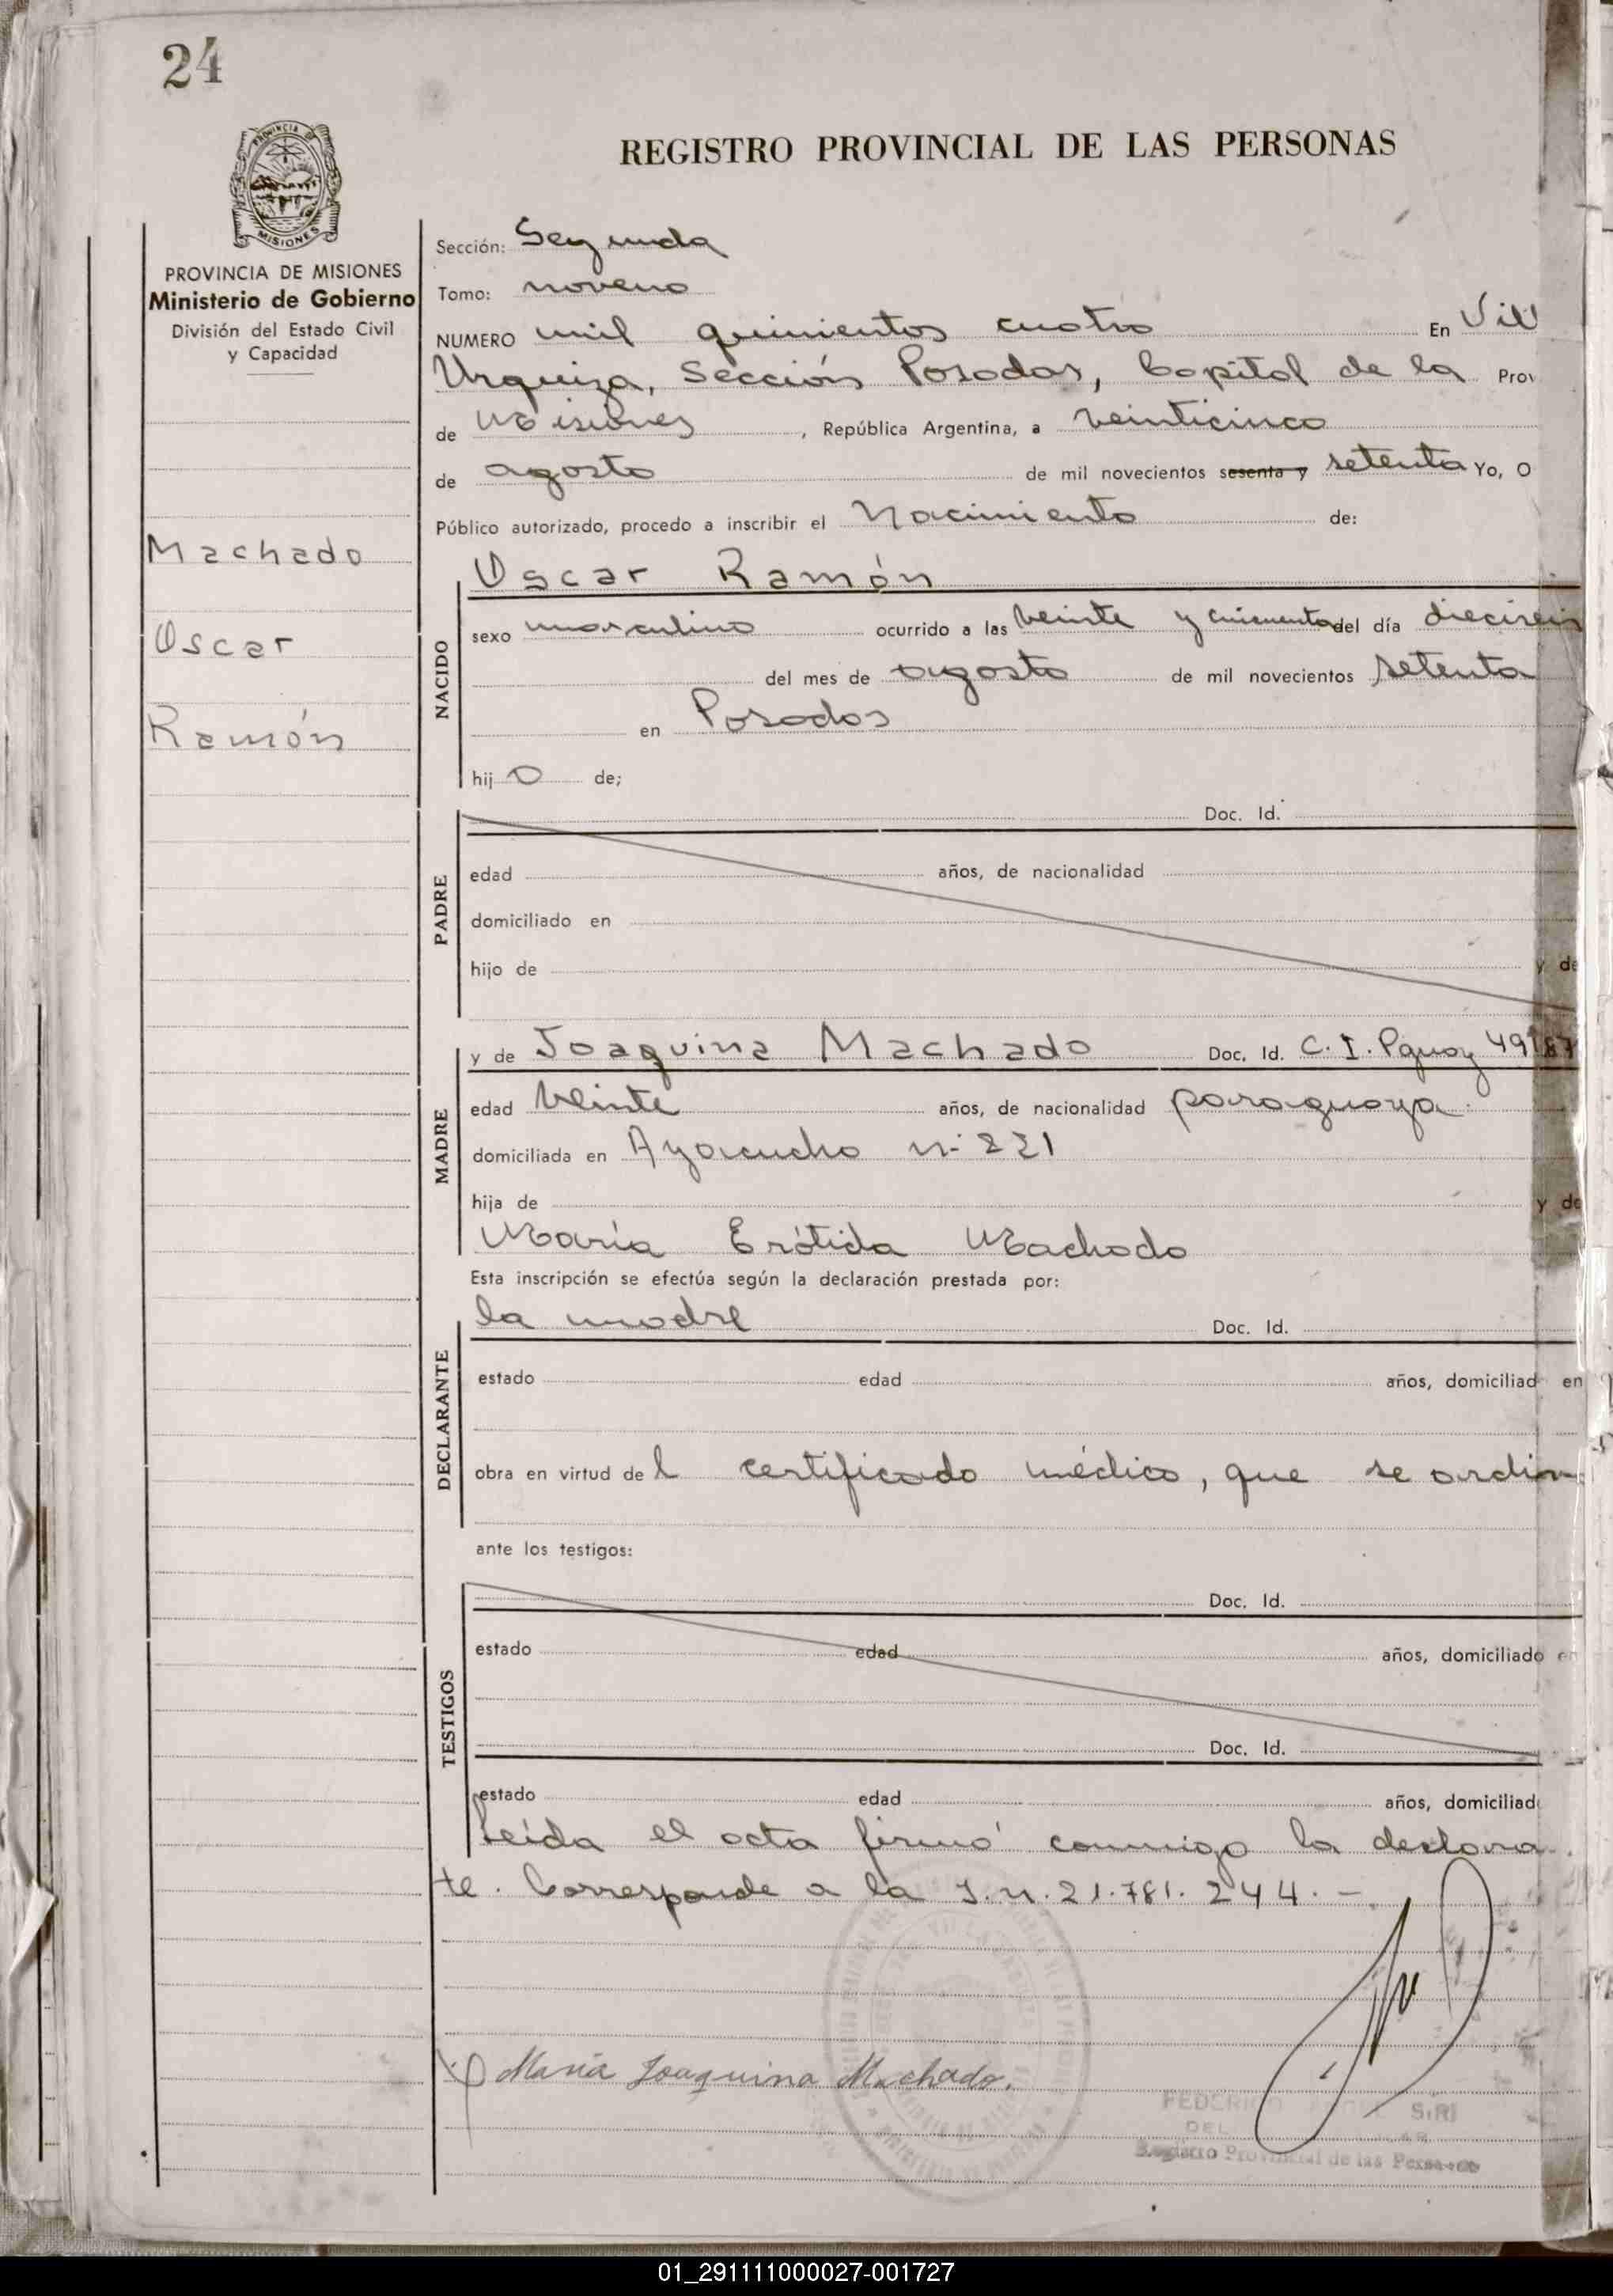 24
REGISTRO PROVINCIAL DE LAS PERSONAS
PROVINCIA DE MISIONES
MISIONES
PROVINCIA DE MISIONES
Ministerio de Gobierno
División del Estado Civil
y Capacidad
Machado
Oscar
Ramón
Sección: Segunda
Tomo: noveno
NUMERO mil quinientos cuatro En Vill
Urquiza, Sección Posadas, Capital de la Prov
de Misiones, República Argentina, a veinticinco
de agosto de mil novecientos sesenta y setenta Yo, O
Público autorizado, procedo a inscribir el Nacimiento de:
NACIDO
Oscar Ramón
sexo masculino ocurrido a las veinte y cincuenta del día dieciseis
del mes de agosto de mil novecientos setenta
en Posadas
hij o de;
PADRE
Doc. Id.
edad años, de nacionalidad
domiciliado en
hijo de y de
MADRE
y de Joaquina Machado Doc. Id. C. I. Pguay
edad veinte años, de nacionalidad paraguaya
domiciliada en Ayacucho n: 221
hija de y de
María Erótida Machado
Esta inscripción se efectúa según la declaración prestada por:
DECLARANTE
la madre Doc. Id.
estado edad años, domiciliad en
obra en virtud del certificado médico, que se
ante los testigos:
TESTIGOS
Doc. Id.
estado edad años, domiciliado en
Doc. Id.
estado edad años, domiciliad
Leída el acta firmó conmigo la declaran
te. Corresponde a la I.n. 21.781.244.-
María Joaquina Machado.
FEDERICO SIRI
DEL
Registro Provincial de las Personas
01_291111000027-001727